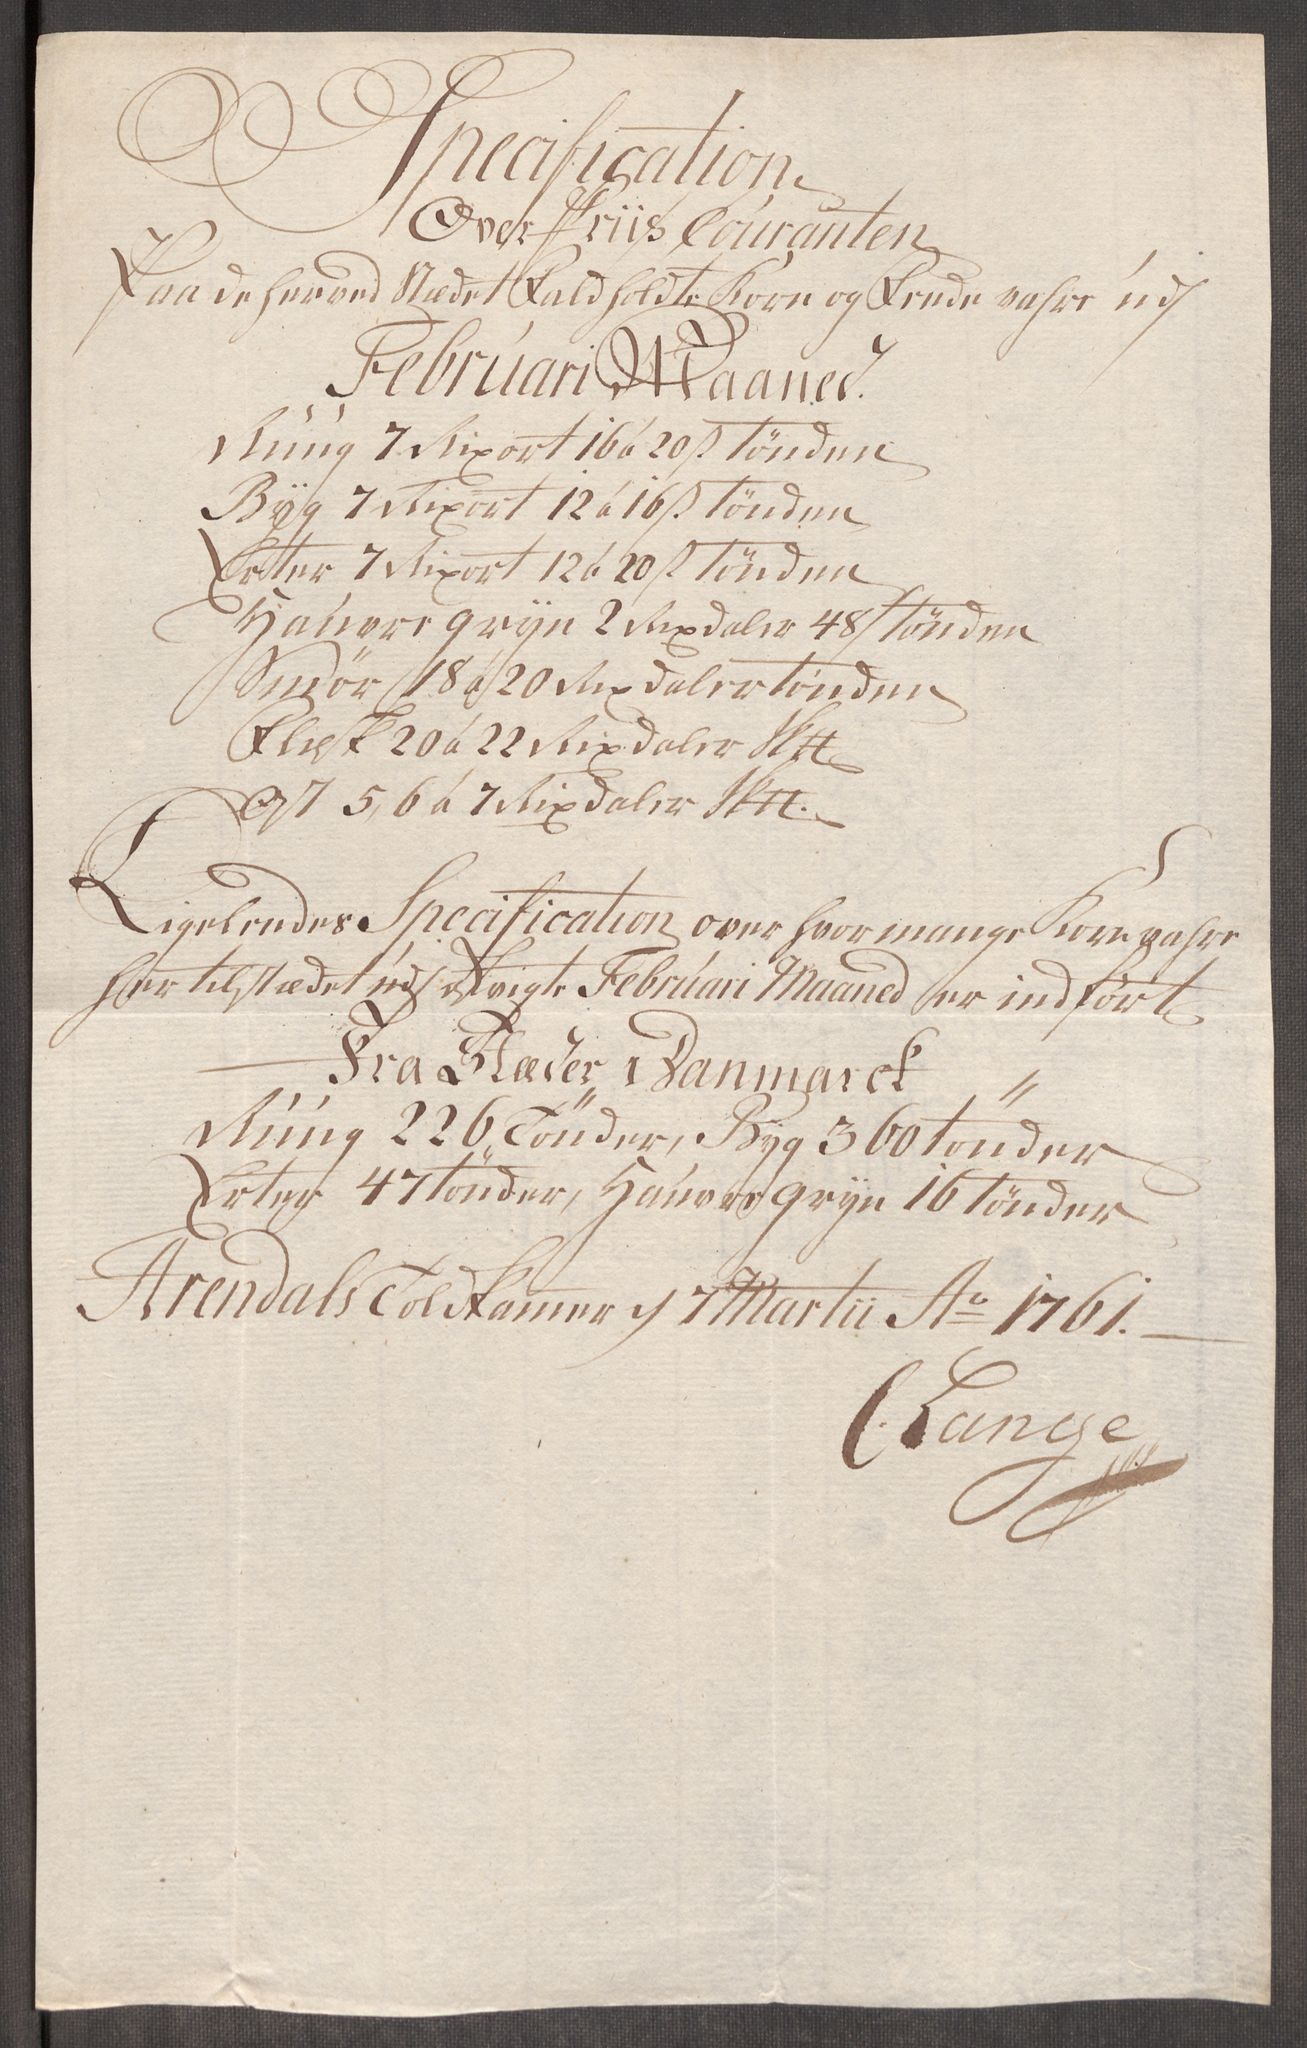 Specification
Over Priis Couranten
Paa de her ved Stædet Faldholdte Korn og Fende vahre udj
Februari Maaned.
Rúúg 7 Rixort 16 á 20 s tönden
Byg 7 Rixort 12 á 16 s tönden
Erter 7 Rixort 12 á 20 s tönden
Hauvre gryn 2 Rixdaler 48 s tönden
Smör 18 á 20 Rixdaler tönden
Flesk 20 á 22 Rixdaler Sk℔
Ost 5, 6 á 7 Rixdaler Sk℔.
Ligeleedes Specification over hvor mange Korn vahre
her til stædet udj Februari Maaned er indfört
Fra Stæder i Danmarck
Rúúg 226 Tönder, Byg 360 tönder
Erter 47 tönder, Hauvre gryn 16 tönder
Arendals Told Kamer d 7 Martii Ao 1761.
C. Lange